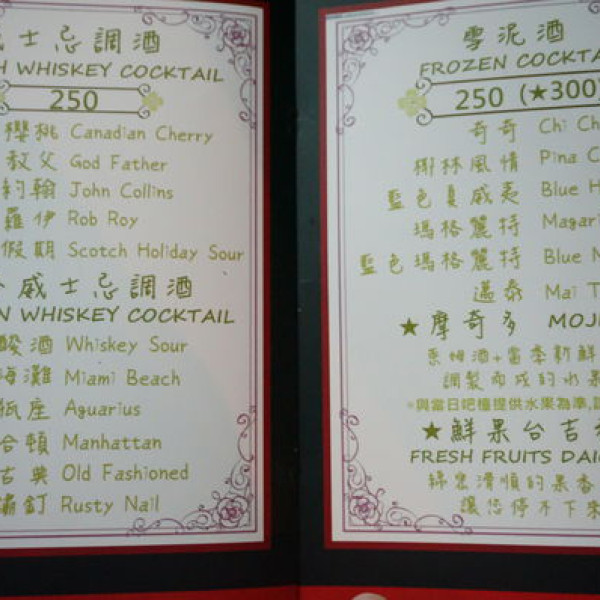 威士忌調酒
WHISKEY COCKTAIL
250
櫻桃 Canadian Cherry
教父 God Father
約翰 John Collins
羅伊 Rob Roy
假期 Scotch Holiday Sour
威士忌調酒
WHISKEY COCKTAIL
酸酒 Whiskey Sour
海灘 Miami Beach
瓶座 Aguarius
哈頓 Manhattan
古典 Old Fashioned
鏽釘 Rusty Nail
雪泥酒
FROZEN COCKTA
250 (★300)
奇奇 Chi Ch
椰林風情 Pina C
藍色夏威夷 Blue H
瑪格麗特 Magari
藍色瑪格麗特 Blue M
邁泰 Mai T
★摩奇多 MOJI
蘭姆酒+當季新鮮
調製而成的水果
※與當日吧檯提供水果為準,
★鮮果台吉
FRESH FRUITS DAI
綿密滑順的果香
讓您停不下來